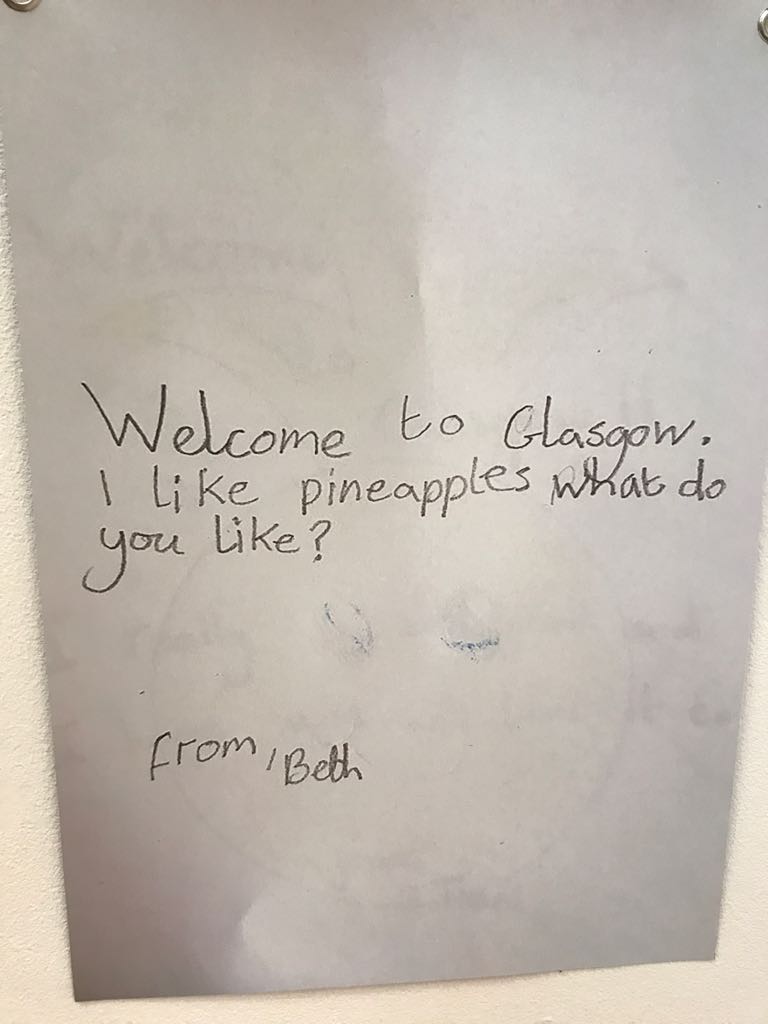 Welcome to Glasgow.
I like pineapples what do
you like?
from, Beth